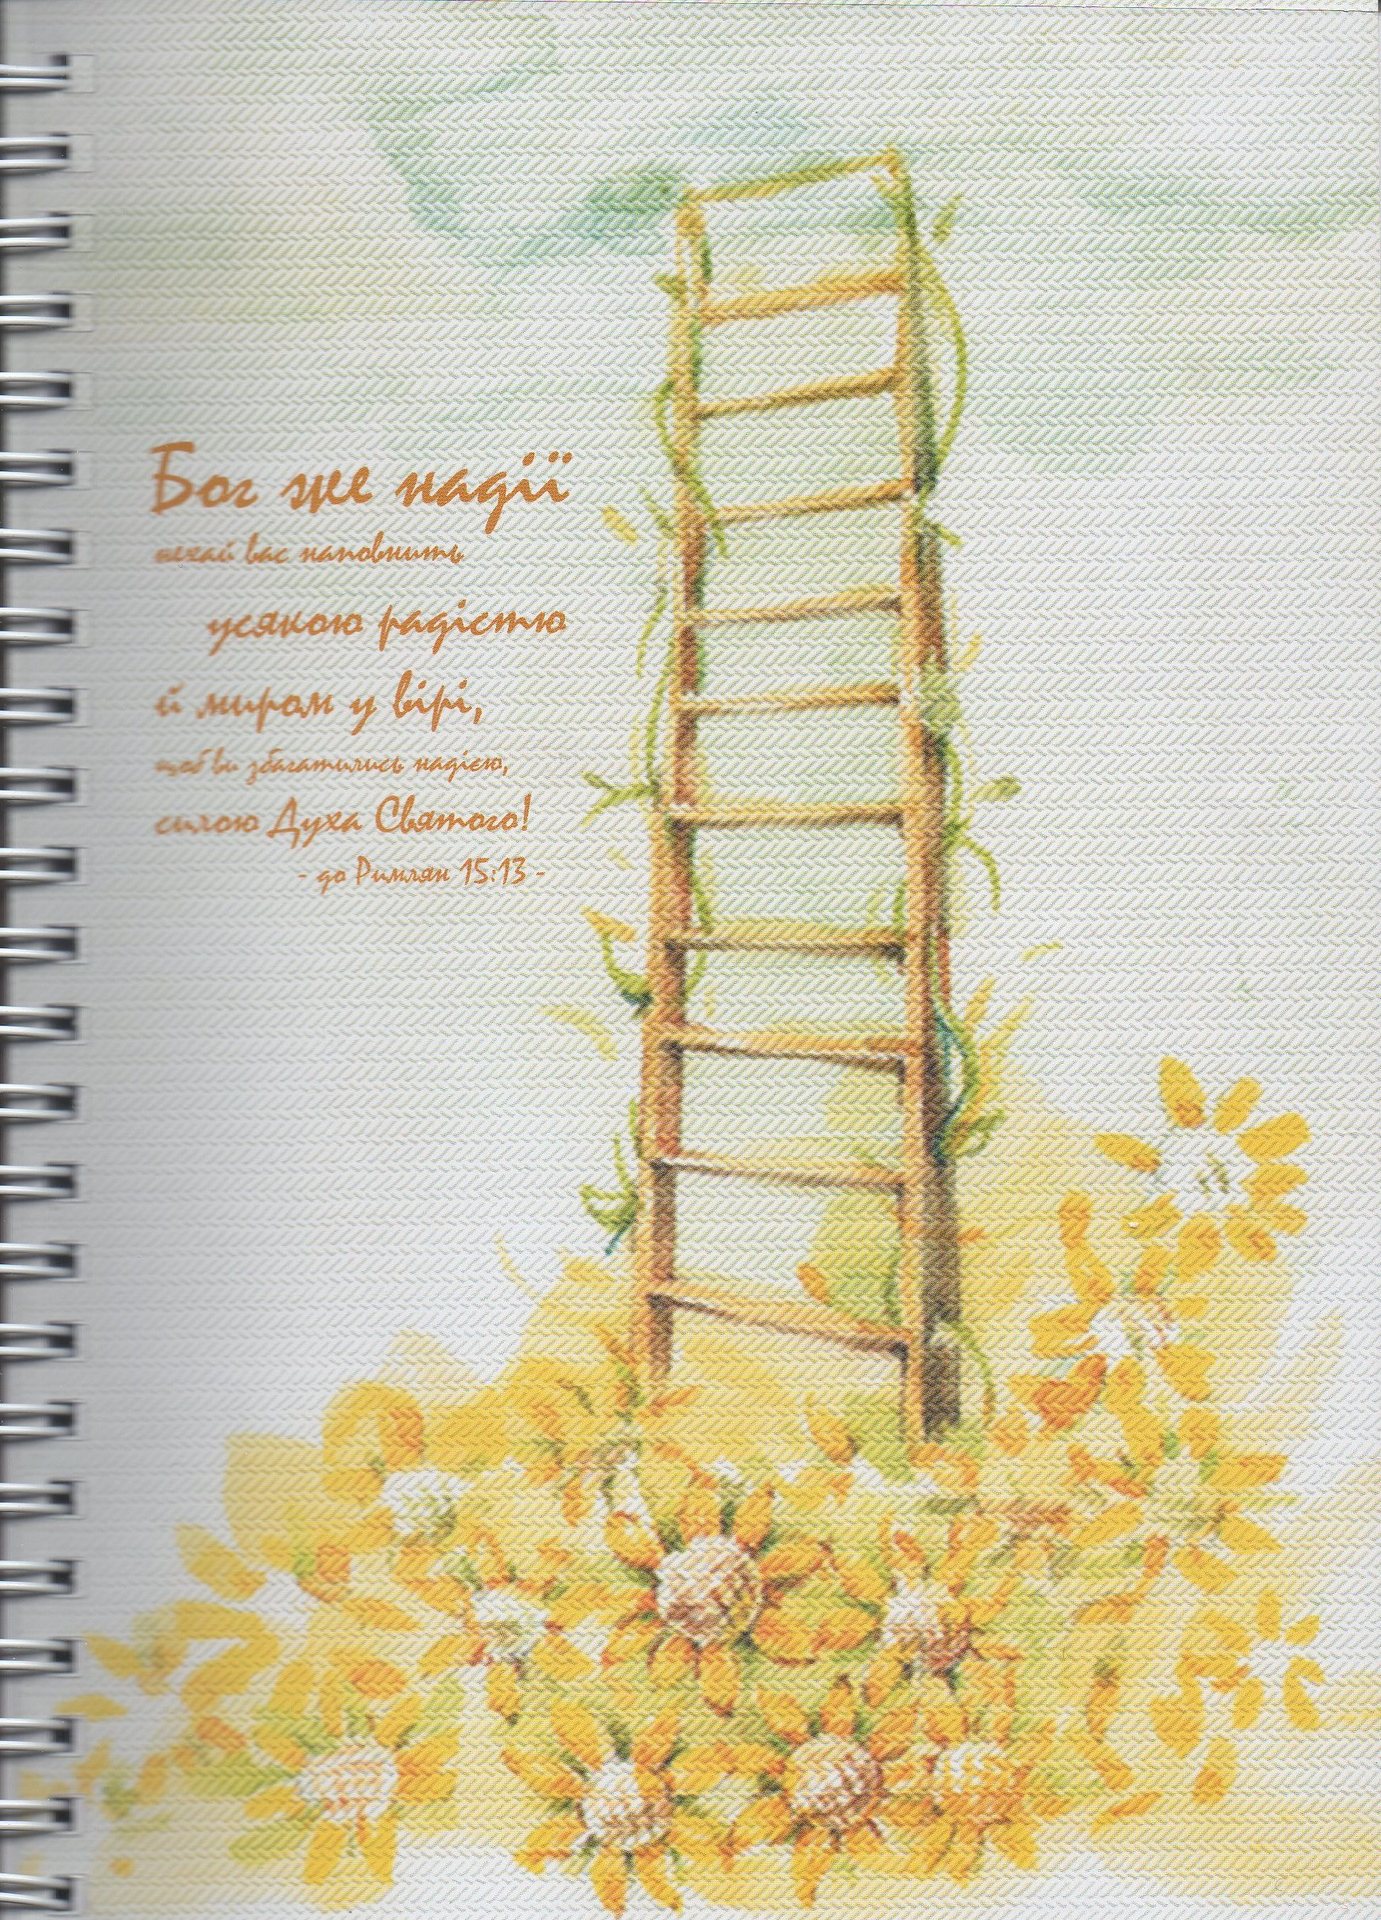 Бог же надії
нехай вас наповнить
усякою радістю
й миром у вірі,
щоб ви збагатились надією,
силою Духа Святого!
- до Римлян 15:13 -